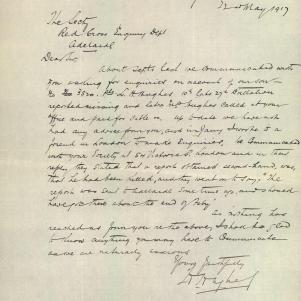 May 1917
The Secty
Red Cross Enquiry Dept
Adelaide
Dear Sir,
About Septr last we communicated with
you asking for enquiries on account of our son
No 3820. Pte L. H. Hughes 10th late 27th Battalion
reported missing and later Mrs Hughes called at your
Office and paid for Cable. Up to date we have not
had any advice from you, and in Jany I wrote to a
friend in London to make Enquiries, he Communicated
with your Society at London and in their
reply they stated that a report obtained second-hand, was
that he had been killed, and they went on to say "The
report was sent to Adelaide some time ago, and should
have reached there about the end of Feby."
As nothing has
reached us from you re the above, I shall be glad
to know anything you may have to Communicate
as we are naturally anxious
Yours faithfully
Hughes